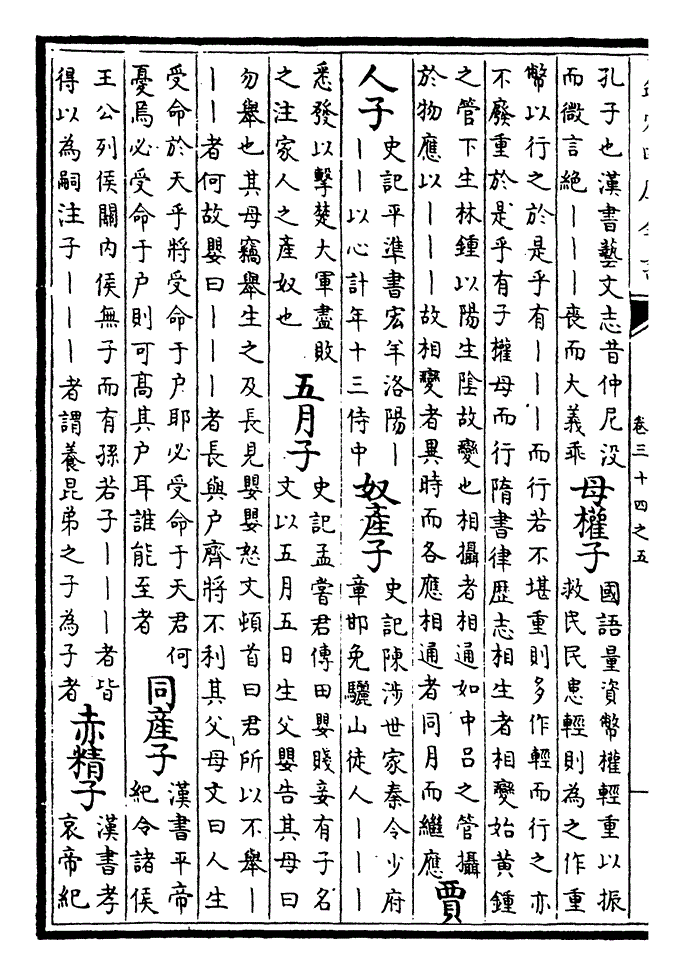 欽定四庫全書
卷三十四之五
孔子也漢書藝文志昔仲尼沒
而微言絕丨丨丨喪而大義乖
母權子
國語量資幣權輕重以振
救民民患輕則為之作重
幣以行之於是乎有丨丨丨而行若不堪重則多作輕而行之亦
不廢重於是乎有子權母而行隋書律歷志相生者相變始黃鍾
之管下生林鍾以陽生陰故變也相攝者相通如中呂之管攝
於物應以丨丨丨故相變者異時而各應相通者同月而繼應
賈
人子
史記平準書宏羊洛陽丨
丨丨以心計年十三侍中
奴產子
史記陳涉世家秦令少府
章邯免驪山徒人丨丨丨
悉發以擊楚大軍盡敗
之注家人之產奴也
五月子
史記孟嘗君傳田嬰賤妾有子名
文以五月五日生父嬰告其母曰
勿舉也其母竊舉生之及長見嬰嬰怒文頓首曰君所以不舉丨
丨丨者何故嬰曰丨丨丨者長與户齊將不利其父母文曰人生
受命於天乎將受命于户耶必受命于天君何
憂焉必受命于户則可高其户耳誰能至者
同產子
漢書平帝
紀令諸侯
王公列侯關內侯無子而有孫若子丨丨丨者皆
得以為嗣注子丨丨丨者謂養昆弟之子為子者
赤精子
漢書孝
哀帝紀